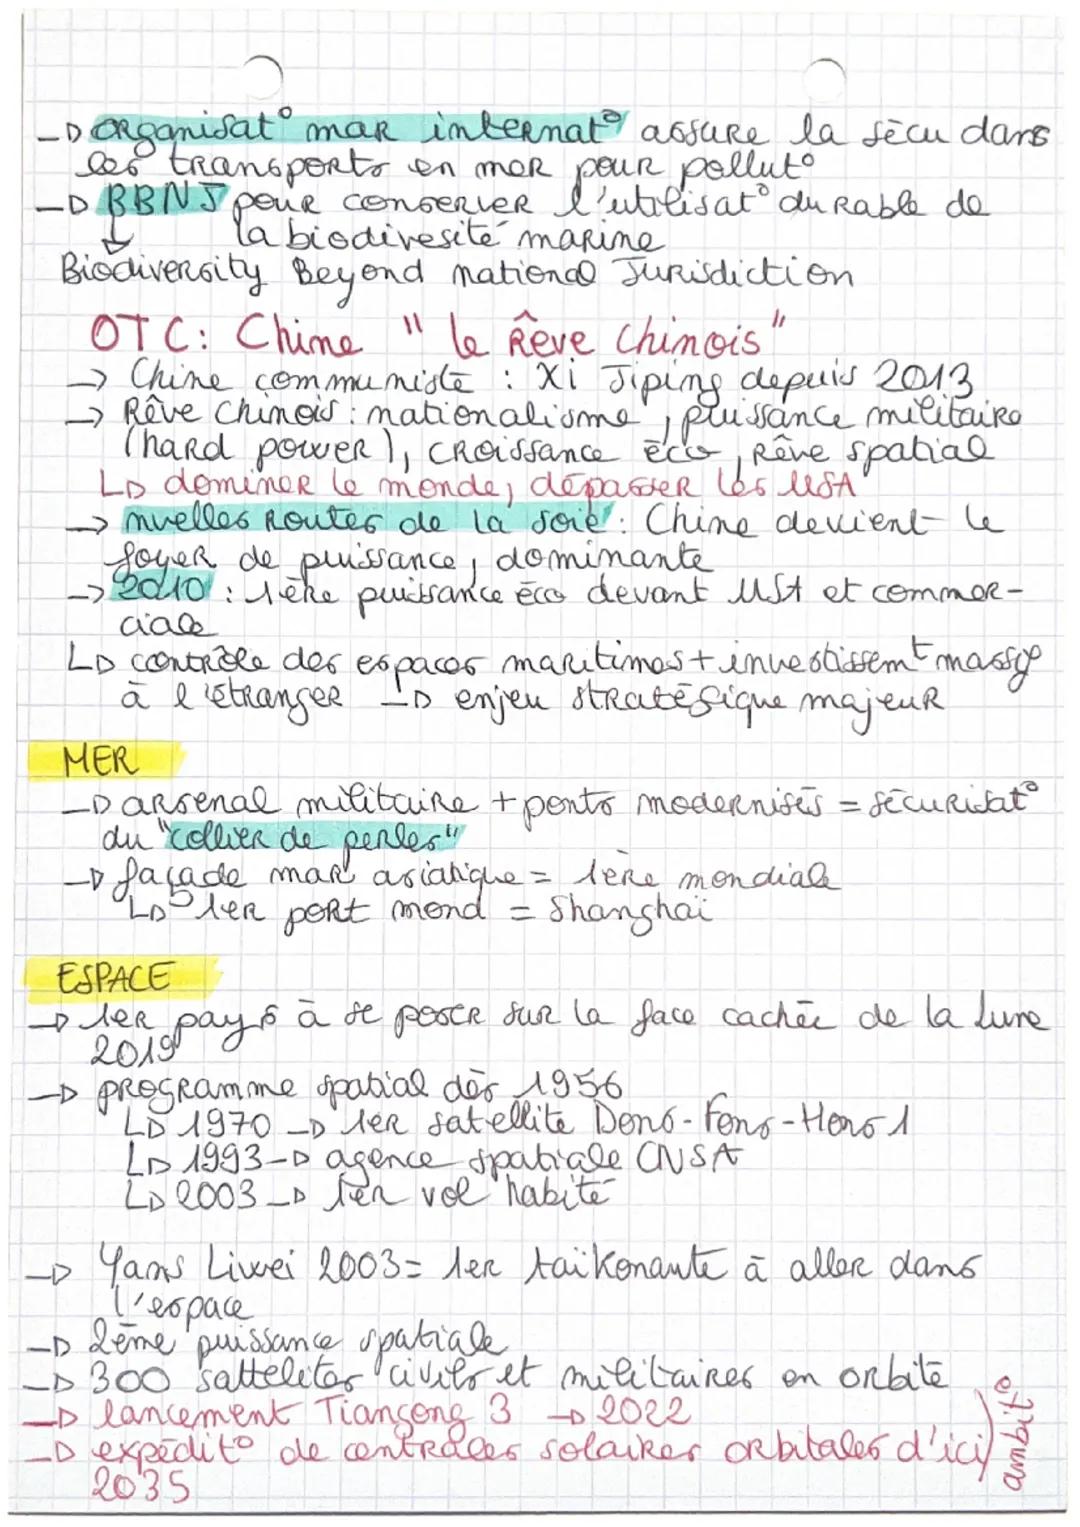 → organisat° mar internat° assure la sécu dans
les transports en mer pour pollut°
→ BBNJ pour conserver l'utilisat° durable de
↓ la biodivesité marine
Biodiversity Beyond national Jurisdiction
OTC: Chine "le Rêve chinois"
→ Chine communiste : Xi Jiping depuis 2013
→ Rêve chinois : nationalisme, puissance militaire
(hard power), croissance éco, Rêve spatial
↳ dominer le monde, dépasser les USA
→ nvelles Routes de la soie : Chine devient le
foyer de puissance, dominante
→ 2010 : 1ère puissance éco devant USA et commer-
ciale
↳ contrôle des espaces maritimes + investissemt massif
à l'étranger → enjeu stratégique majeur
MER
→ arsenal militaire + ponts modernisés = sécurisat°
du "collier de perles"
→ façade mar asiatique = 1ère mondiale
↳ 1er port mond = Shanghaï
ESPACE
→ 1er pays à se poser sur la face cachée de la lune
2019
→ programme spatial dès 1956
↳ 1970 → 1er satellite Dong-Fong-Hong 1
↳ 1993 → agence spatiale CNSA
↳ 2003 → 1er vol habité
→ Yang Liwei 2003 = 1er taïkonaute à aller dans
l'espace
→ 2ème puissance spatiale
→ 300 sattelites civils et militaires en orbite
→ lancement Tiangong 3 → 2022
→ expédit° de centrales solaires orbitales d'ici
2035
ambit°